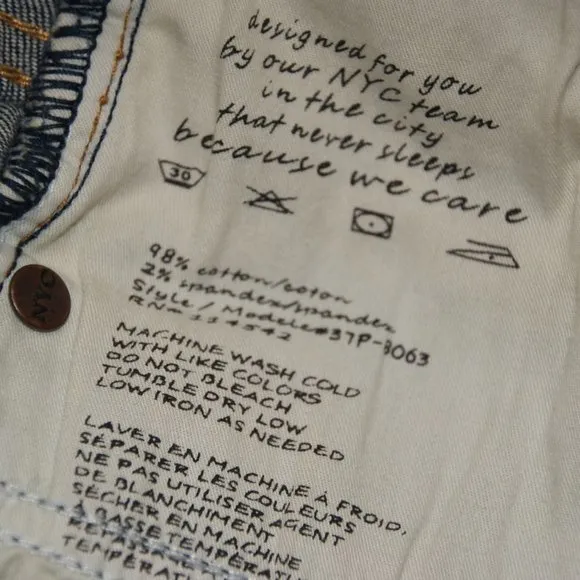 designed for you
by our NYC team
in the city
that never sleeps
because we care
30
98% cotton/coton
2% spandex/spandex
Style / Modele#37P-3063
RN# 114542
NYC
MACHINE WASH COLD
WITH LIKE COLORS
DO NOT BLEACH
TUMBLE DRY LOW
LOW IRON AS NEEDED
LAVER EN MACHINE À FROID,
SÉPARER LES COULEURS
NE PAS UTILISER AGENT
DE BLANCHIMENT
SÉCHER EN MACHINE
À BASSE TEMPÉRATU
REPASSAGE
TEMPÉRATU